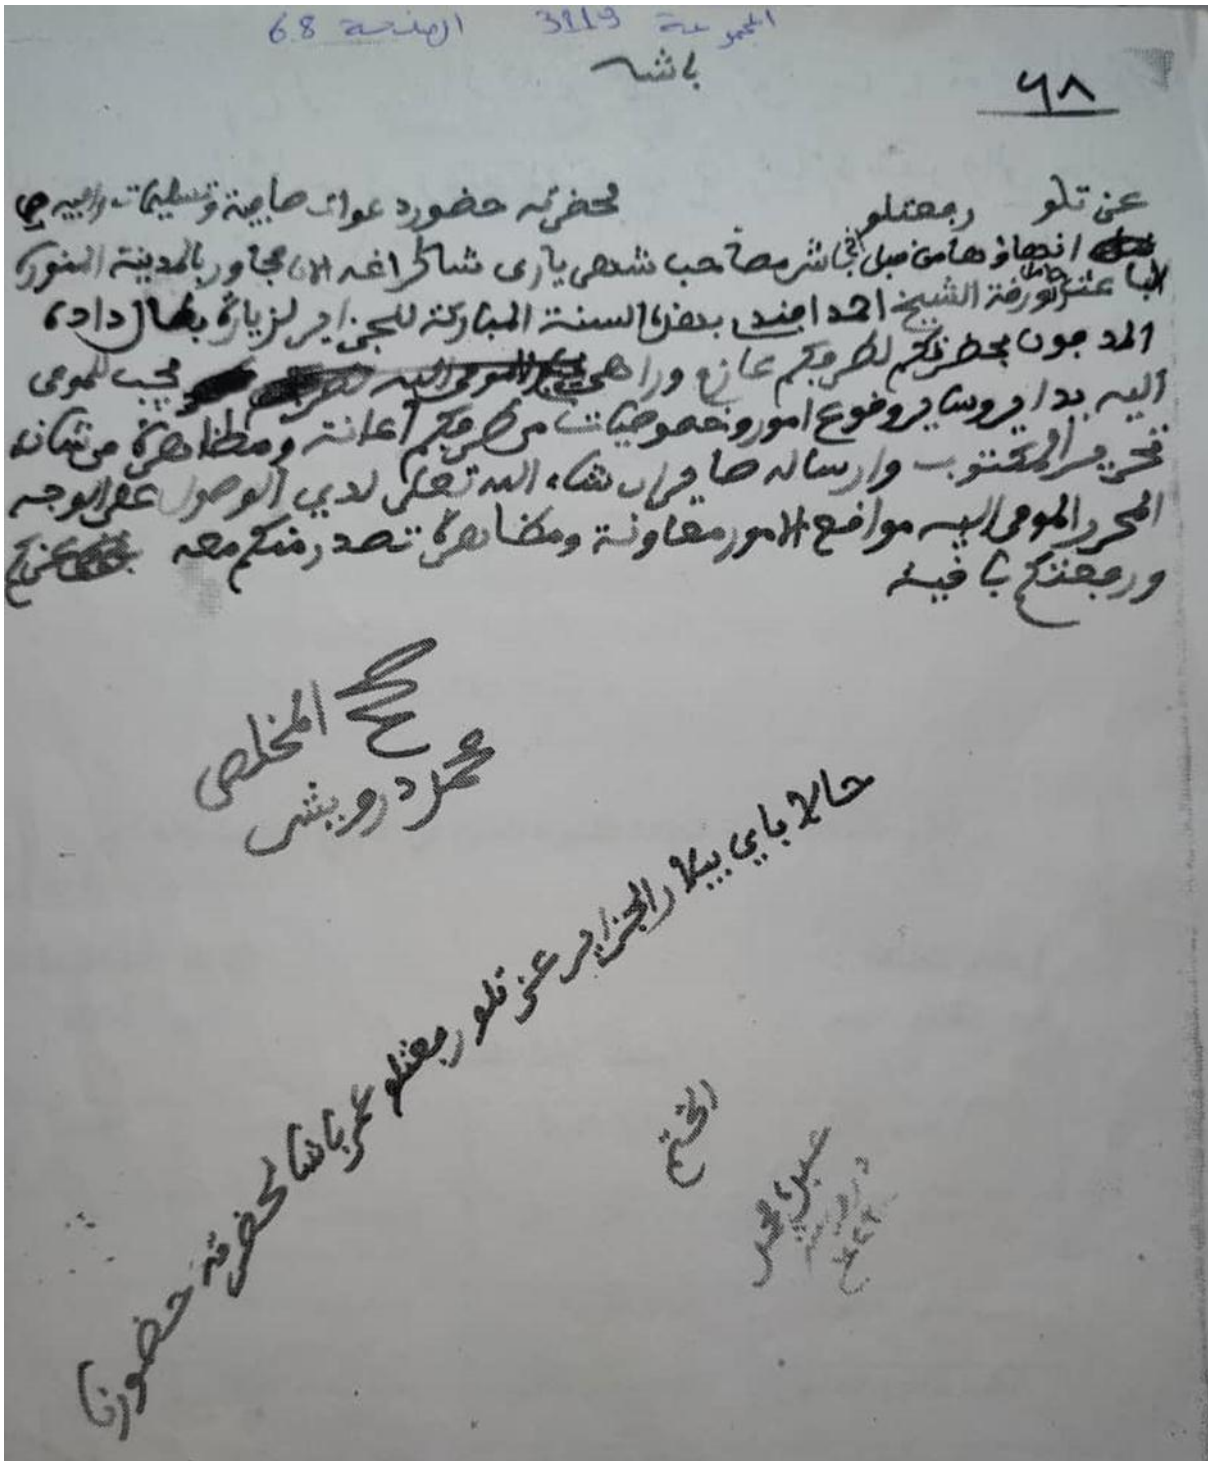 المجموعة 3119 الصفحة 68
باشه
٦٨
عزتلو رفعتلو لحضرته حضورد عواد صافية وتسليمات وافيه
انهاؤها من قبل مصاحب شهرياري شاكر اغه الان مجاور بالمدينة المنورة
الباعث حامل الورقة الشيخ احمد افندي بهذه السنة المباركة للجزاير لزيارة داده
المدجون بحضرتكم لطرفكم عازم وراهي المومى اليه يجب للمومى
اليه بداير وساير وقوع امور وخصوصيات من طرفكم اعانة ومظاهرة من شانه
تحرير المكتوب وارساله صاير ان شاء الله تعلى لدي الوصول على الوجه
المحرر المومى اليه مواقع الامور معاونة ومظاهرة تصدر منكم معه عزتكم
ورفعتكم باقية
المخلص
محمد درويش
حالا باي بيلار الجزاير عزتلو رفعتلو عمر باشا لحضرته حضورنا
الختم
عبده محمد
درويش